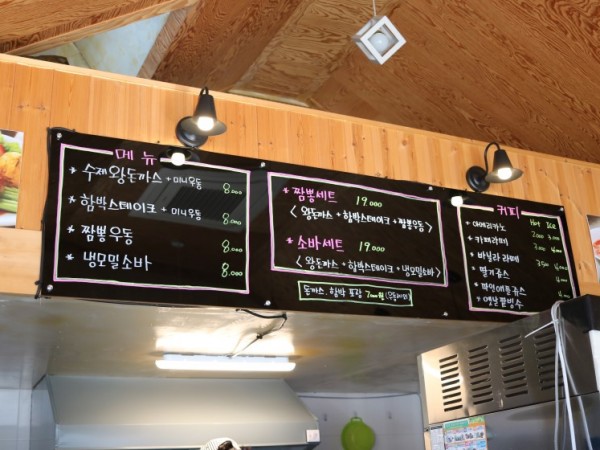 메뉴
* 수제왕돈까스 + 미니우동 8,000
* 함박스테이크 + 미니우동 8,000
* 짬뽕우동 8,000
* 냉모밀소바 8,000
* 짬뽕세트 19,000
< 왕돈까스 + 함박스테이크 + 짬뽕우동 >
* 소바세트 19,000
< 왕돈까스 + 함박스테이크 + 냉모밀소바 >
돈까스, 함박 포장 7,000원
커피
Hot Ice
* 아메리카노 2,000 3,000
* 카페라떼 3,000 4,000
* 바닐라 라떼 3,500 4,000
* 딸기쥬스 4,000
* 파인애플쥬스 4,000
* 옛날팥빙수